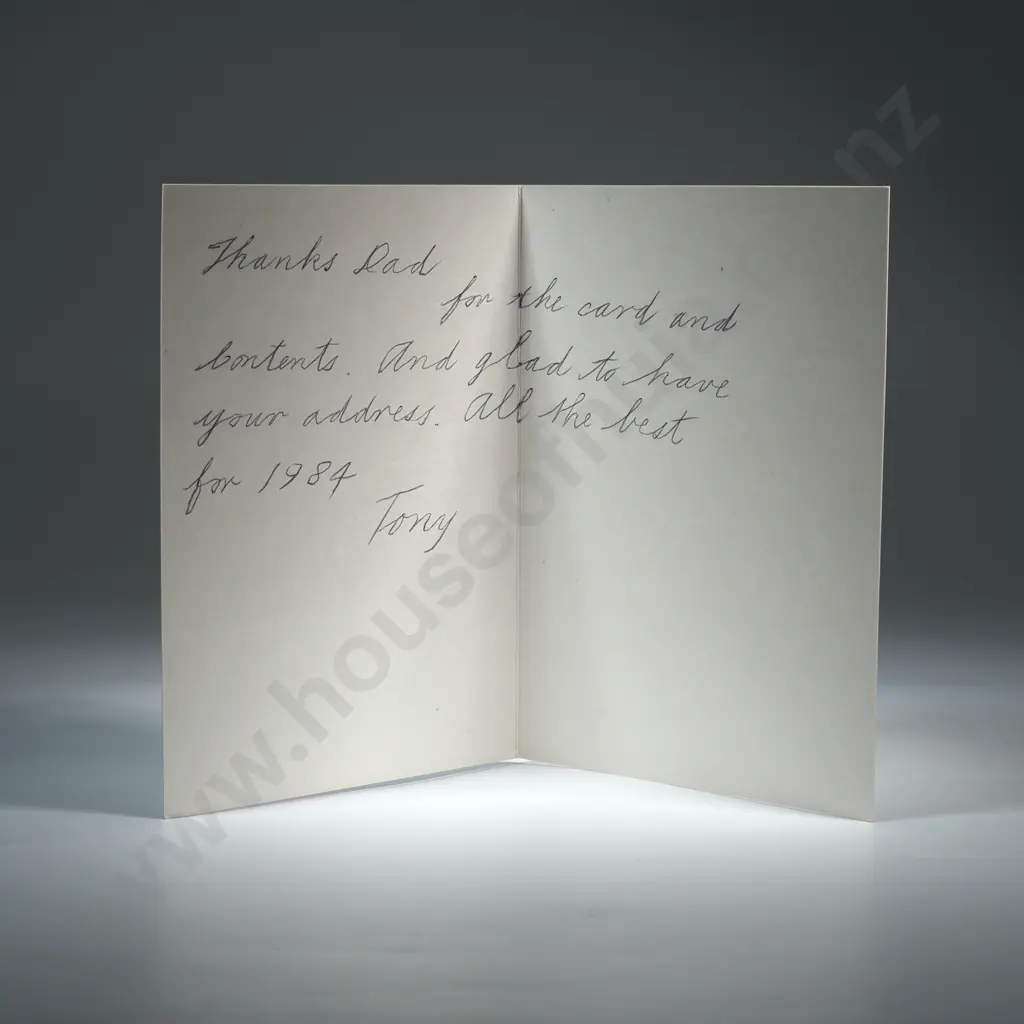 Thanks Dad
for the card and
Contents. And glad to have
your address. All the best
for 1984
Tony
www.houseofnuia.co.nz